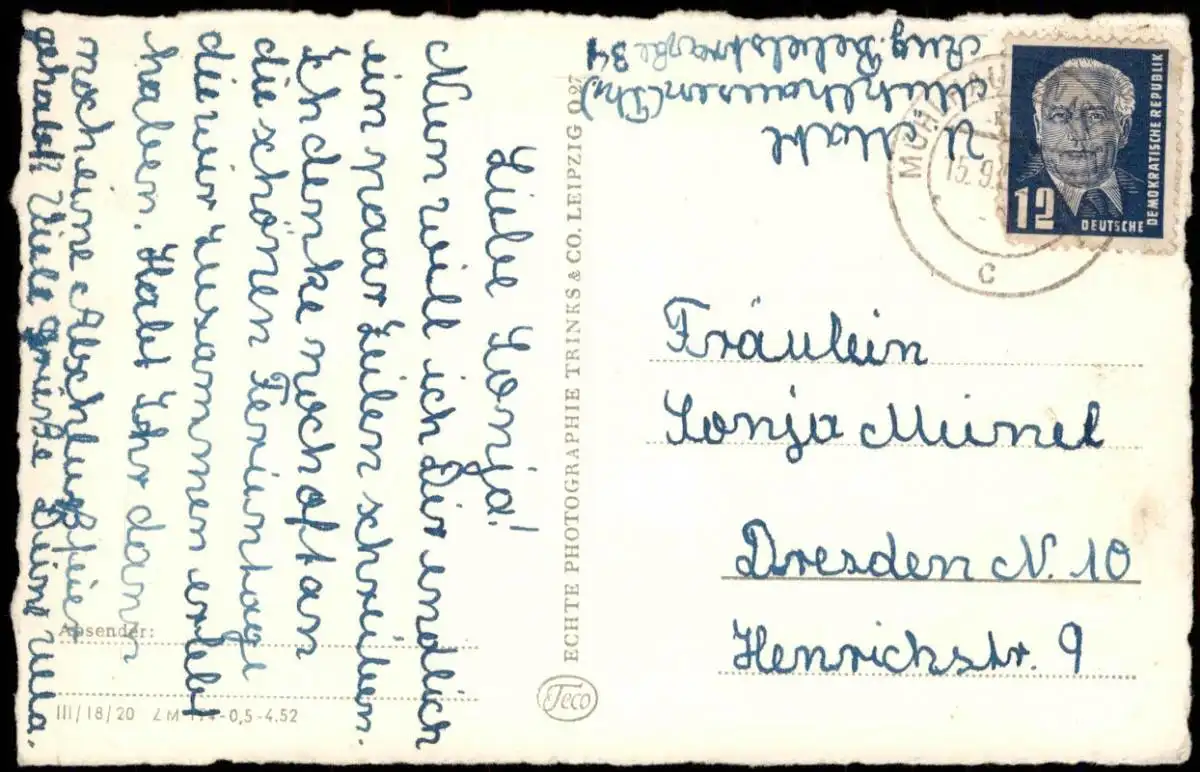 Liebe Sonja!
Nun will ich Dir endlich
ein paar Zeilen schreiben.
Ich denke noch oft an
die schönen Ferientage
die wir zusammen erlebt
haben. Habt Ihr dann
noch eine Abschlußfeier
gehabt? Viele Grüße Deine Ulla.
Absender:
III/18/20 -0,5-4.52
ECHTE PHOTOGRAPHIE TRINKS & CO. LEIPZIG O 27
Teco
U.
Mühlhausen (Thr)
Aug. Bebelstraße 34
15.9.
C
12
DEUTSCHE
DEMOKRATISCHE REPUBLIK
Fräulein
Sonja Meinel
Dresden N. 10
Henrichstr. 9